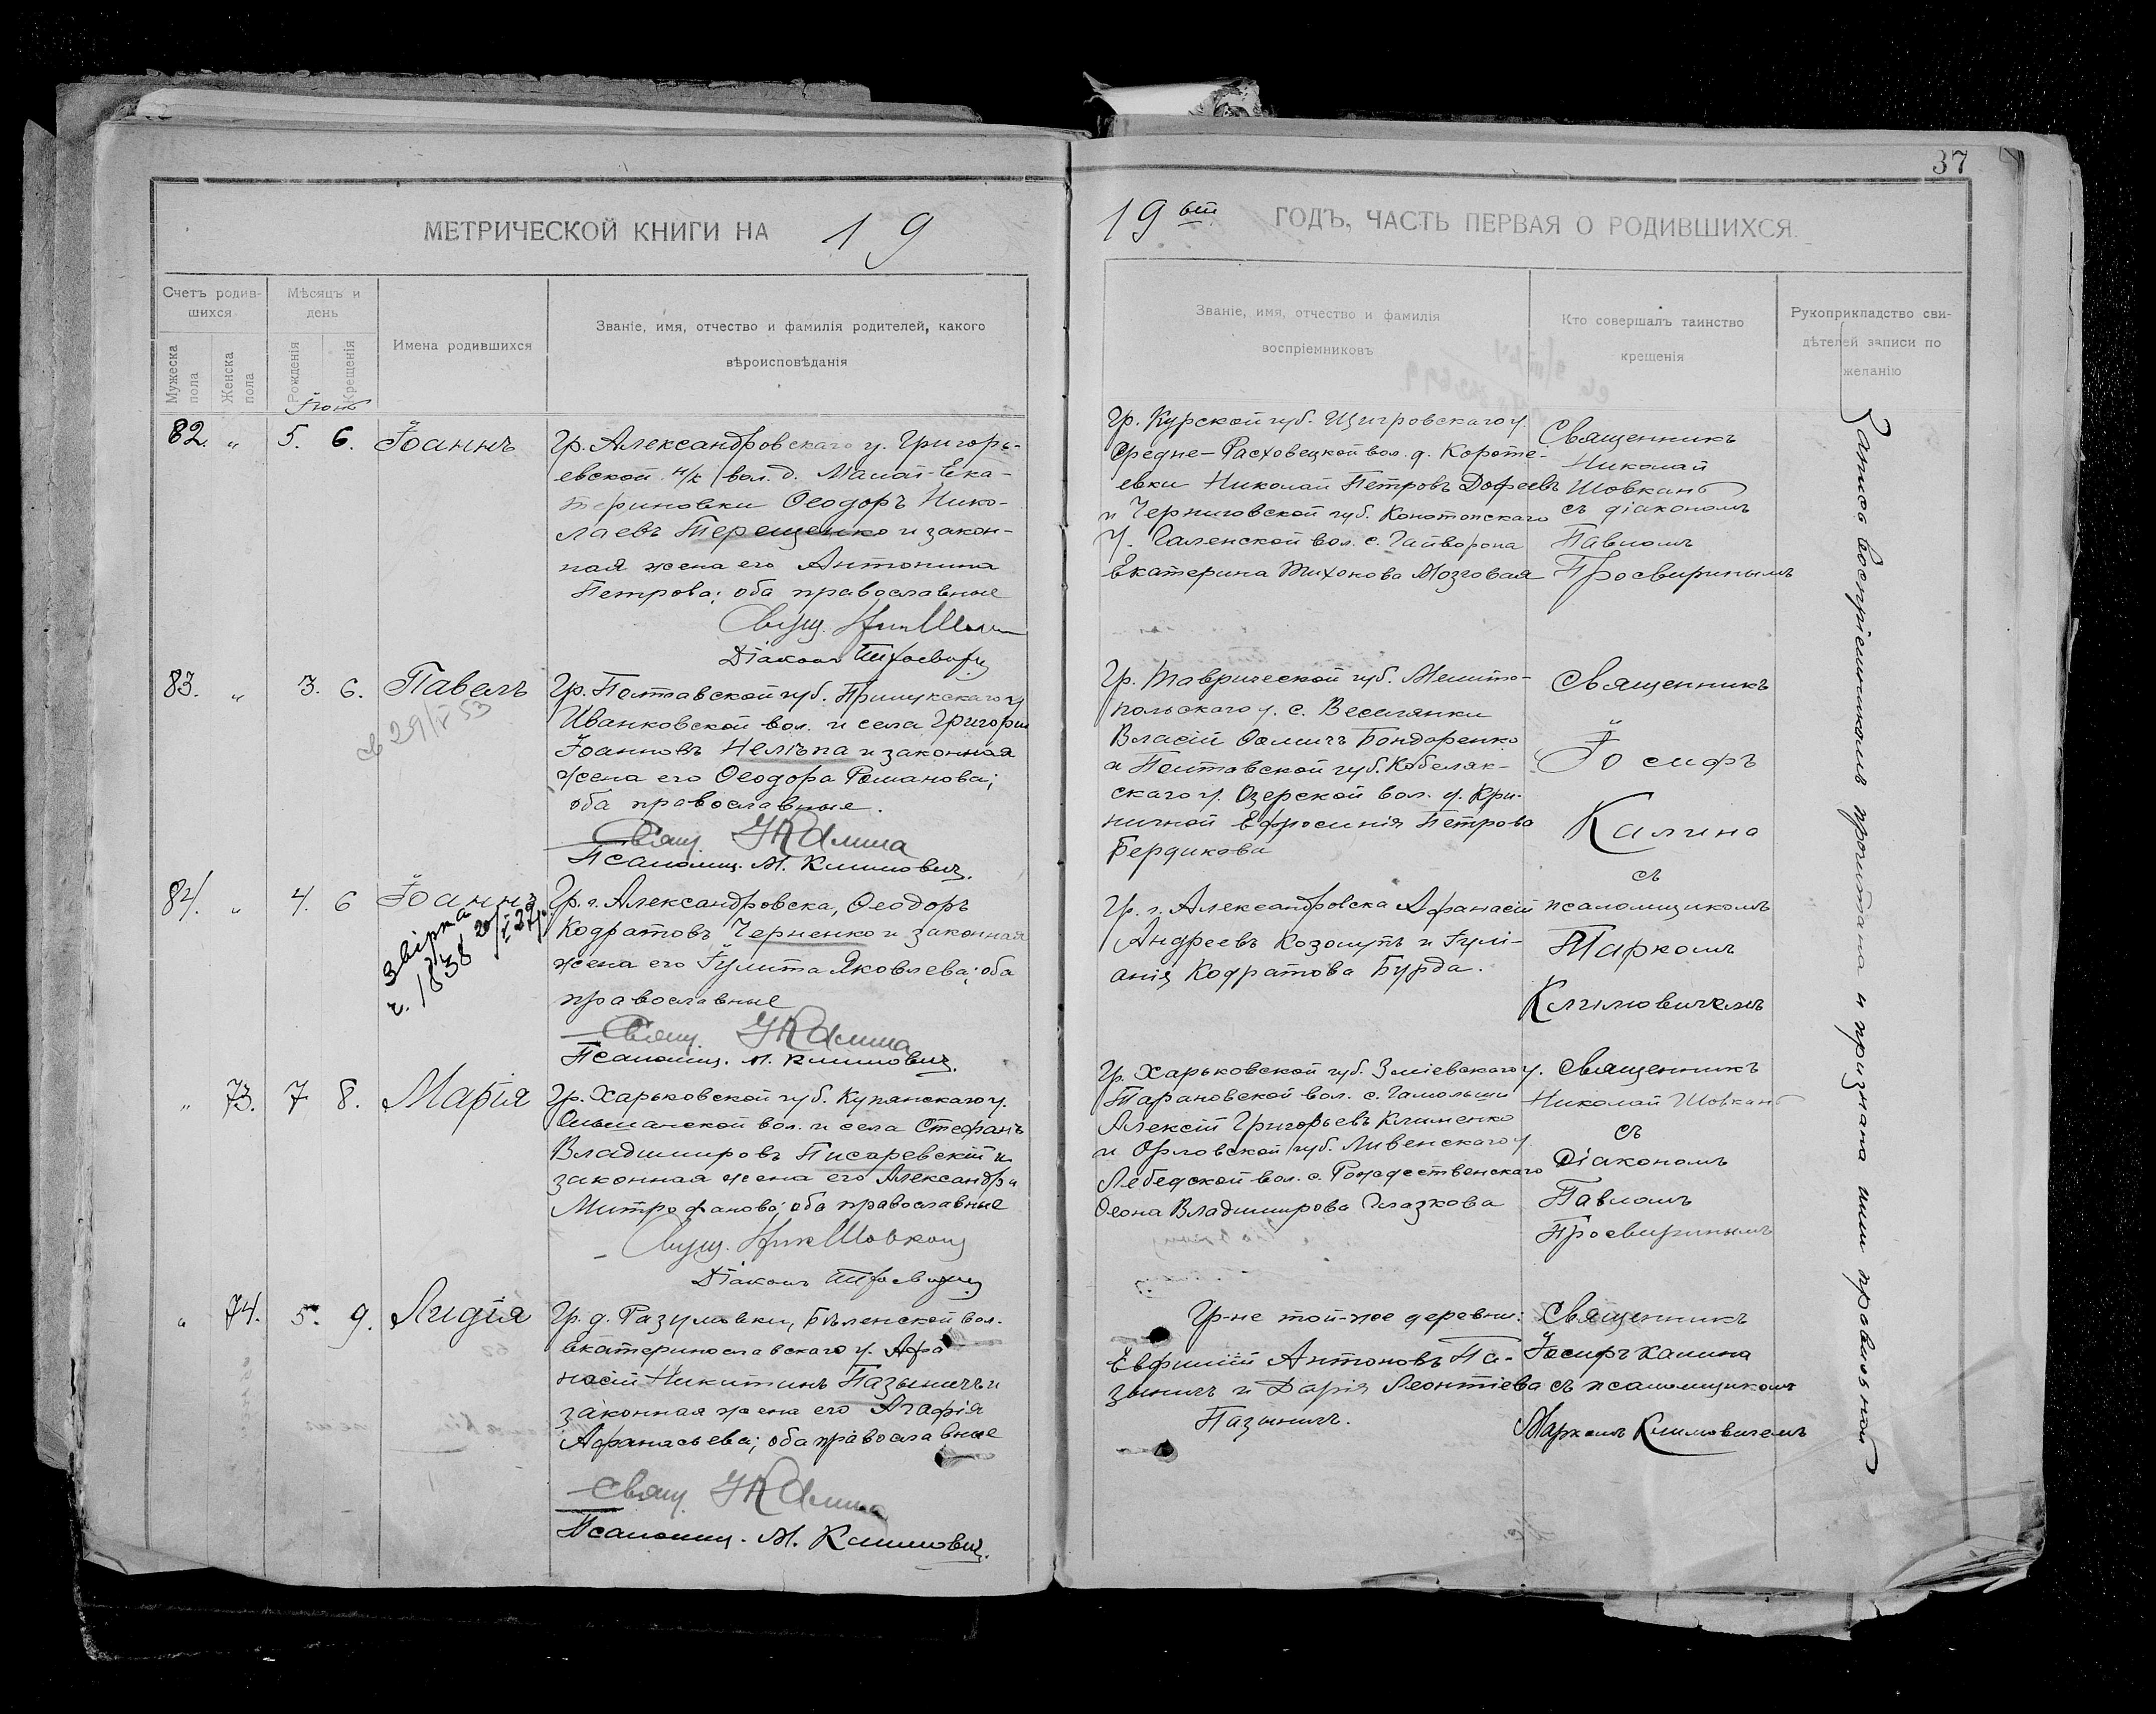 37
МЕТРИЧЕСКОЙ КНИГИ НА 19
19 ый ГОДЪ, ЧАСТЬ ПЕРВАЯ О РОДИВШИХСЯ.
Счетъ родив-
шихся
Мужеска
пола
Женска
пола
Мѣсяцъ и
день
Рожденія
Крещенія
Имена родившихся
Званіе, имя, отчество и фамилія родителей, какого
вѣроисповѣданія
Званіе, имя, отчество и фамилія
воспріемниковъ
Кто совершалъ таинство
крещенія
Рукоприкладство сви-
дѣтелей записи по
желанію
82. „ 5. 6. Іоаннъ
Гр. Александровскаго у. Григорь-
евской н/к вол. д. Малой-Ека-
териновки Ѳеодоръ Нико-
лаевъ Терещенко и закон-
ная жена его Антонина
Петрова; оба православные
Діаконъ
Гр. Курской губ. Щигровскаго у.
Средне-Расховецкой вол. д. Короте-
евки Николай Петровъ Дофеевъ
и Черниговской губ. Конотопскаго
у. с. Гайворона
Екатерина Тихонова Мозговая
Священникъ
Николай
Шовканъ
съ діакономъ
Павломъ
Просвиринымъ
83. „ 3. 6. Павелъ
29/V 53
Гр. Полтавской губ. Прилукскаго у
Иванковской вол. и села Григорій
Іоанновъ Нелѣпа и законная
жена его Ѳеодора Романова;
оба православные.
Свящ. І Калина
Псаломщ. М. Климовичъ.
Гр. Таврической губ. Мелито-
польскаго у. с. Веселянки
Власій Ѳомичъ Бондаренко
а Полтавской губ. Кобеляк-
скаго у. Озерской вол. д. Кри-
ничной Ефросинія Петрова
Бердикова
Священникъ
Іосифъ
Калина
съ
псаломщикомъ
Маркомъ
Климовичемъ
84. „ 4. 6 Іоаннъ
Звірка
ч. 1838
Гр. г. Александровска, Ѳеодоръ
Кодратовъ Черненко и законная
жена его Іулита Яковлева; оба
православные
Свящ. І Калина
Псаломщ. М. Климовичъ.
Гр. г. Александровска Афанасій
Андреевъ Козолупъ и Іулі-
анія Кодратова Бурда.
„ 73. 7 8. Марія
Гр. Харьковской губ. Купянскаго у.
Ольшанской вол. и села Стефанъ
Владимировъ Писаревскій и
законная жена его Александра
Митрофанова; оба православные
Свящ. Ник Шовканъ
Діаконъ
Гр. Харьковской губ. Зміевскаго у.
Тарановской вол. с. Гомольши
Алексій Григорьевъ Клименко
и Орловской губ. Ливенскаго у
Лебедской вол. с. Рождественскаго
Ѳеона Владимирова Глазкова
Священникъ
Николай Шовканъ
съ
Діакономъ
Павломъ
Просвиринымъ
„ 74. 5. 9. Лидія
Гр. д. Разумовки, Бѣленской вол.
Екатеринославскаго у. Афа
насій Никитинъ Пазыничъ и
законная жена его Агафія
Афанасьева; оба православные
Свящ. І Калина
Псаломщ. М. Климовичъ.
Гр-не той-же деревни:
Евфимій Антоновъ Па-
зыничъ и Дарія Леонтіева
Пазыничъ.
Священникъ
Іосифъ Калина
съ псаломщикомъ
Маркомъ Климовичемъ
Запись воспріемникамъ прочитана и признана ими правильной